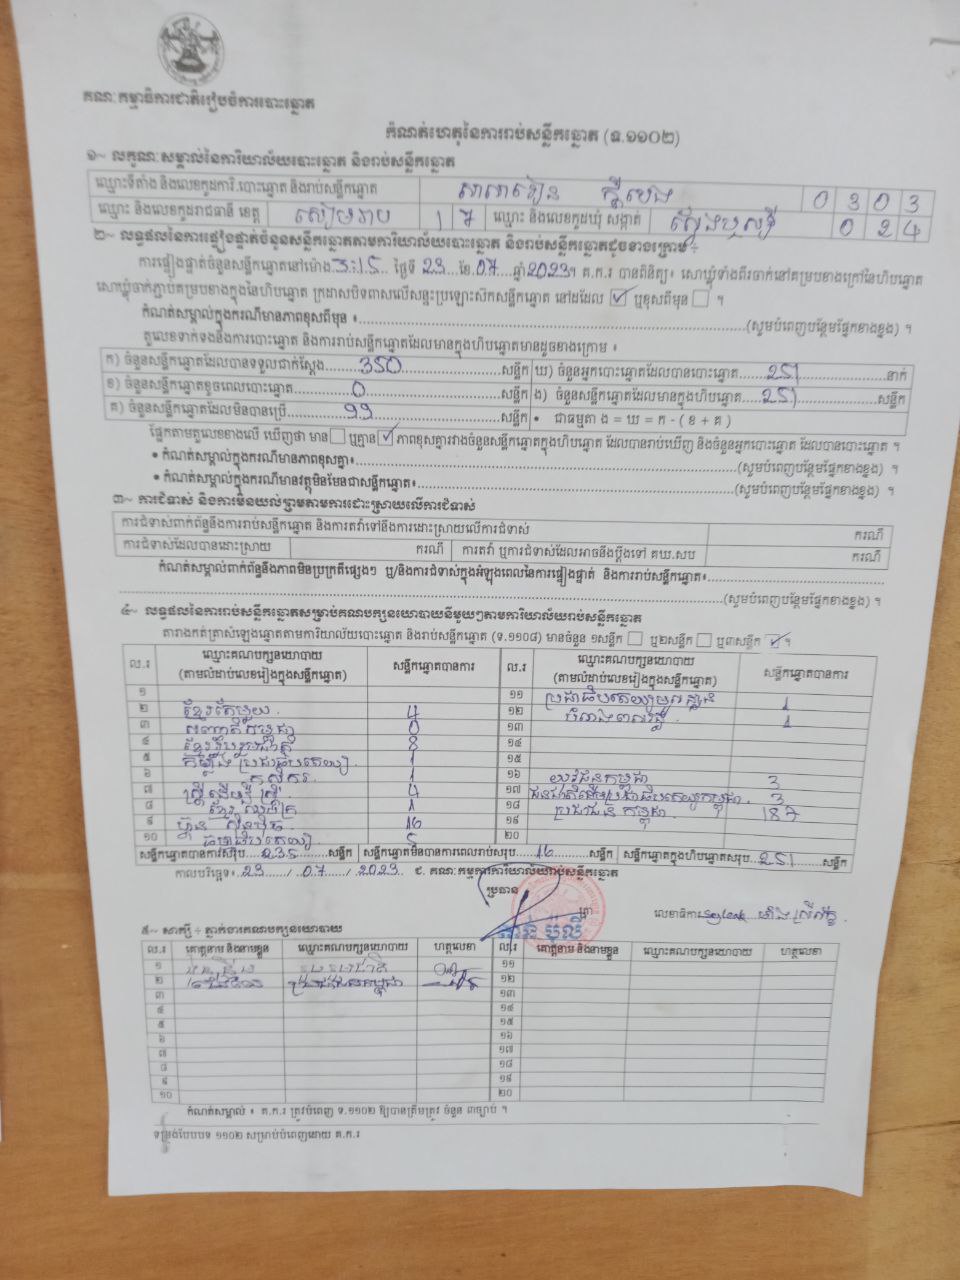 គណៈកម្មាធិការជាតិរៀបចំការបោះឆ្នោត
កំណត់ហេតុនៃការរាប់សន្លឹកឆ្នោត (ទ.១១០២)
១~ លក្ខណៈសម្គាល់នៃការិយាល័យបោះឆ្នោត និងរាប់សន្លឹកឆ្នោត
ឈ្មោះទីតាំង និងលេខកូដការិ.បោះឆ្នោត និងរាប់សន្លឹកឆ្នោត សាលារៀន 0303
ឈ្មោះ និងលេខកូដរាជធានី ខេត្ត សៀមរាប 17 ឈ្មោះ និងលេខកូដឃុំ សង្កាត់ 024
២~ លទ្ធផលនៃការផ្ទៀងផ្ទាត់ចំនួនសន្លឹកឆ្នោតតាមការិយាល័យបោះឆ្នោត និងរាប់សន្លឹកឆ្នោតដូចខាងក្រោម ៖
ការផ្ទៀងផ្ទាត់ចំនួនសន្លឹកឆ្នោតនៅម៉ោង 3:15 ថ្ងៃទី 23 ខែ 07 ឆ្នាំ 2023។ គ.ក.រ បានពិនិត្យ៖ សោឃ្លុំទាំងពីរចាក់នៅគម្របខាងក្រៅនៃហិបឆ្នោត
សោឃ្លុំចាក់ភ្ជាប់គម្របខាងក្នុងនៃហិបឆ្នោត ក្រដាសបិទពាសលើសន្ទះប្រឡោះសិកសន្លឹកឆ្នោត នៅដដែល ☑ ឬខុសពីមុន ☐ ។
កំណត់សម្គាល់ក្នុងករណីមានភាពខុសពីមុន ៖ (សូមបំពេញបន្ថែមផ្នែកខាងខ្នង) ។
តួលេខទាក់ទងនឹងការបោះឆ្នោត និងការរាប់សន្លឹកឆ្នោតដែលមានក្នុងហិបឆ្នោតមានដូចខាងក្រោម ៖
ក) ចំនួនសន្លឹកឆ្នោតដែលបានទទួលជាក់ស្តែង 350 សន្លឹក ឃ) ចំនួនអ្នកបោះឆ្នោតដែលបានបោះឆ្នោត 251 នាក់
ខ) ចំនួនសន្លឹកឆ្នោតខូចពេលបោះឆ្នោត 0 សន្លឹក ង) ចំនួនសន្លឹកឆ្នោតដែលមានក្នុងហិបឆ្នោត 251 សន្លឹក
គ) ចំនួនសន្លឹកឆ្នោតដែលមិនបានប្រើ 99 សន្លឹក • ជាធម្មតា ង = ឃ = ក - ( ខ + គ )
ផ្អែកតាមតួលេខខាងលើ ឃើញថា មាន ☐ ឬគ្មាន ☑ ភាពខុសគ្នារវាងចំនួនសន្លឹកឆ្នោតក្នុងហិបឆ្នោត ដែលបានរាប់ឃើញ និងចំនួនអ្នកបោះឆ្នោត ដែលបានបោះឆ្នោត ។
• កំណត់សម្គាល់ក្នុងករណីមានភាពខុសគ្នា៖ (សូមបំពេញបន្ថែមផ្នែកខាងខ្នង) ។
• កំណត់សម្គាល់ក្នុងករណីមានវត្ថុមិនមែនជាសន្លឹកឆ្នោត៖ (សូមបំពេញបន្ថែមផ្នែកខាងខ្នង) ។
៣~ ការជំទាស់ និងការមិនយល់ព្រមតាមការដោះស្រាយលើការជំទាស់
ការជំទាស់ពាក់ព័ន្ធនឹងការរាប់សន្លឹកឆ្នោត និងការតវ៉ាទៅនឹងការដោះស្រាយលើការជំទាស់ ករណី
ការជំទាស់ដែលបានដោះស្រាយ ករណី ការតវ៉ា ឬការជំទាស់ដែលអាចនឹងប្តឹងទៅ គឃ.សប ករណី
កំណត់សម្គាល់ពាក់ព័ន្ធនឹងភាពមិនប្រក្រតីផ្សេងៗ ឬ/និងការជំទាស់ក្នុងអំឡុងពេលនៃការផ្ទៀងផ្ទាត់ និងការរាប់សន្លឹកឆ្នោត៖
(សូមបំពេញបន្ថែមផ្នែកខាងខ្នង) ។
៤~ លទ្ធផលនៃការរាប់សន្លឹកឆ្នោតសម្រាប់គណបក្សនយោបាយនីមួយៗតាមការិយាល័យរាប់សន្លឹកឆ្នោត
តារាងកត់ត្រាសំឡេងឆ្នោតតាមការិយាល័យបោះឆ្នោត និងរាប់សន្លឹកឆ្នោត (ទ.១១០៨) មានចំនួន ១សន្លឹក ☐ ឬ២សន្លឹក ☐ ឬ៣សន្លឹក ☑ ។
ល.រ ឈ្មោះគណបក្សនយោបាយ (តាមលំដាប់លេខរៀងក្នុងសន្លឹកឆ្នោត) សន្លឹកឆ្នោតបានការ ល.រ ឈ្មោះគណបក្សនយោបាយ (តាមលំដាប់លេខរៀងក្នុងសន្លឹកឆ្នោត) សន្លឹកឆ្នោតបានការ
១ ១១ ប្រជាធិបតេយ្យមូលដ្ឋាន 1
២ ខ្មែរតែមួយ 4 ១២ 1
៣ សញ្ជាតិកម្ពុជា 0 ១៣
៤ ខ្មែររួបរួមជាតិ 8 ១៤
៥ កម្លាំងប្រជាធិបតេយ្យ 1 ១៥
៦ កសិករ 1 ១៦ យុវជនកម្ពុជា 3
៧ ស្ត្រីដើម្បីស្ត្រី 4 ១៧ ជនជាតិដើមប្រជាធិបតេយ្យកម្ពុជា 3
៨ 1 ១៨ ប្រជាជនកម្ពុជា 187
៩ ហ្វ៊ុនស៊ិនប៉ិច 16 ១៩
១០ 5 ២០
សន្លឹកឆ្នោតបានការសរុប 235 សន្លឹក សន្លឹកឆ្នោតមិនបានការពេលរាប់សរុប 16 សន្លឹក សន្លឹកឆ្នោតក្នុងហិបឆ្នោតសរុប 251 សន្លឹក
កាលបរិច្ឆេទ៖ 23 / 07 / 2023 ជ. គណៈកម្មការការិយាល័យរាប់សន្លឹកឆ្នោត
ប្រធាន
ត្រា លេខាធិការ
៥~ សាក្សី ៖ ភ្នាក់ងារគណបក្សនយោបាយ
ល.រ គោត្តនាម និងនាមខ្លួន ឈ្មោះគណបក្សនយោបាយ ហត្ថលេខា ល.រ គោត្តនាម និងនាមខ្លួន ឈ្មោះគណបក្សនយោបាយ ហត្ថលេខា
១ ១១
២ ប្រជាជនកម្ពុជា ១២
៣ ១៣
៤ ១៤
៥ ១៥
៦ ១៦
៧ ១៧
៨ ១៨
៩ ១៩
១០ ២០
កំណត់សម្គាល់ ៖ គ.ក.រ ត្រូវបំពេញ ទ.១១០២ ឱ្យបានត្រឹមត្រូវ ចំនួន ៣ច្បាប់ ។
ទម្រង់បែបបទ ១១០២ សម្រាប់បំពេញដោយ គ.ក.រ